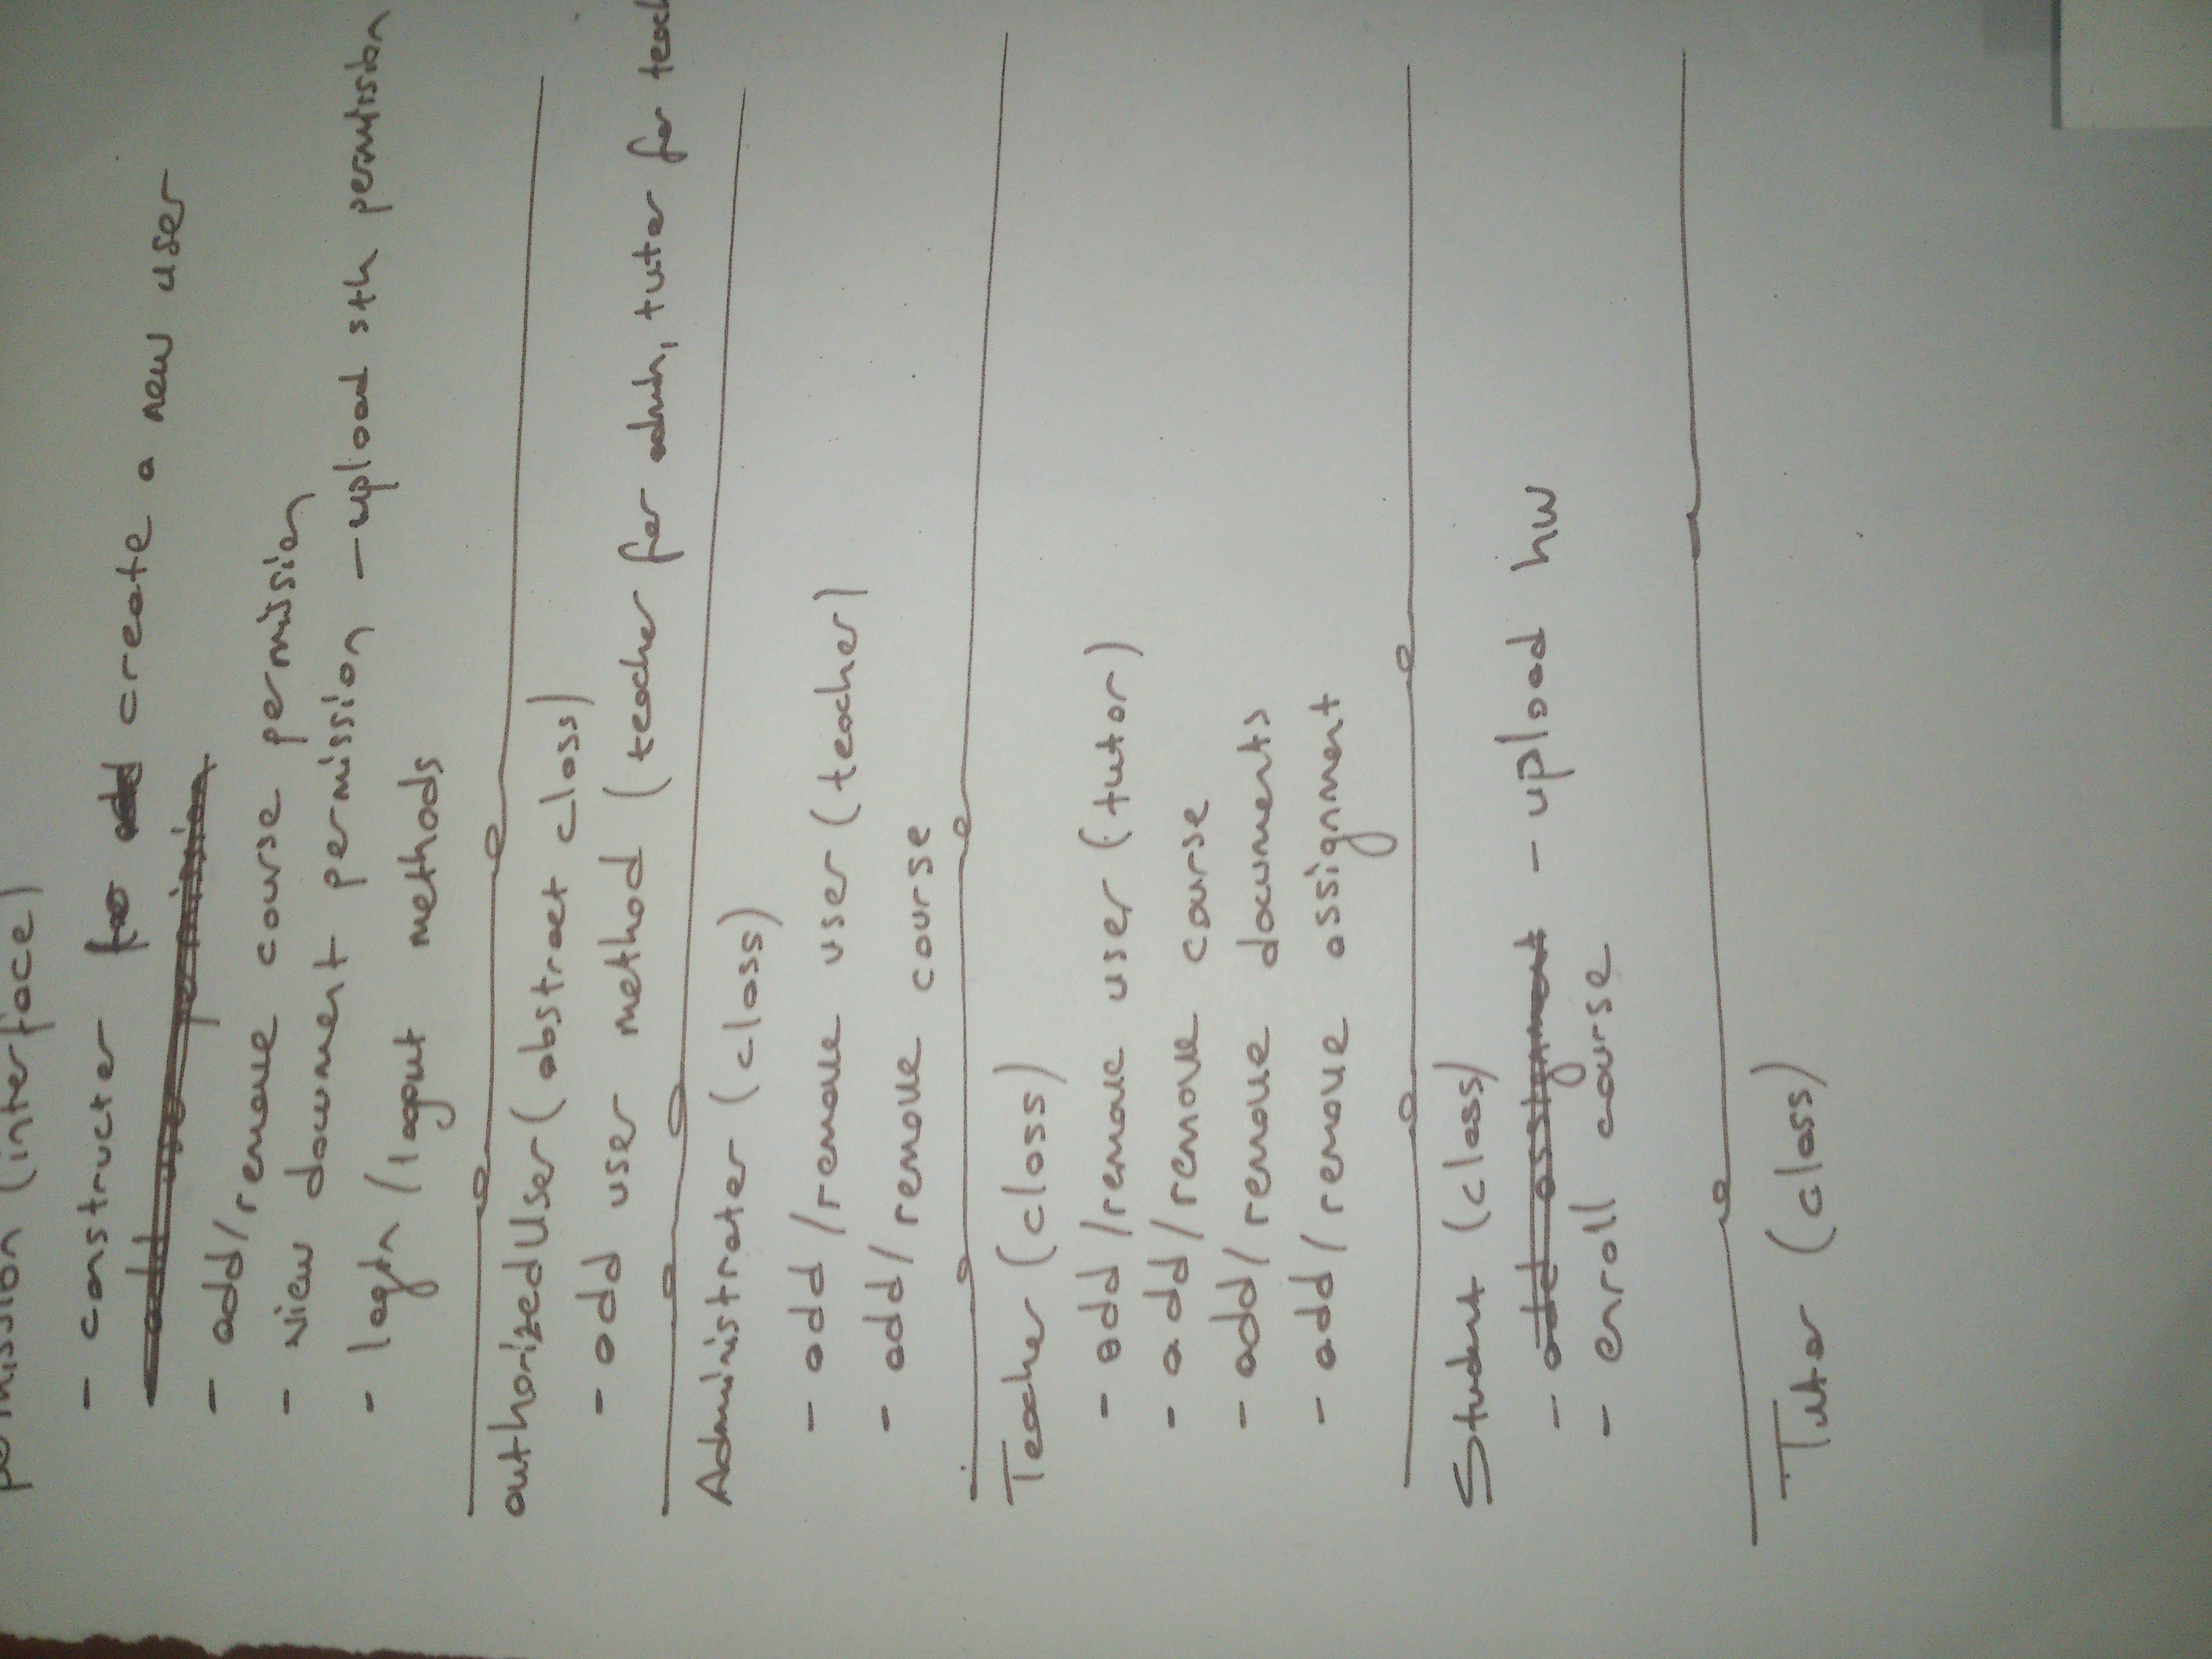 permission (interface)
- constructer to add create a new user
- add use permission
- add/remove course permission
- view document permission - upload sth permission
- login/logout methods
authorizedUser (abstract class)
- add user method (teacher for admin, tutor for teach
Administrater (class)
- add/remove user (teacher)
- add/remove course
Teacher (class)
- add/remove user (tutor)
- add/remove course
- add/remove documents
- add/remove assignment
Student (class)
- add assignment - upload hw
- enroll course
Tutor (class)